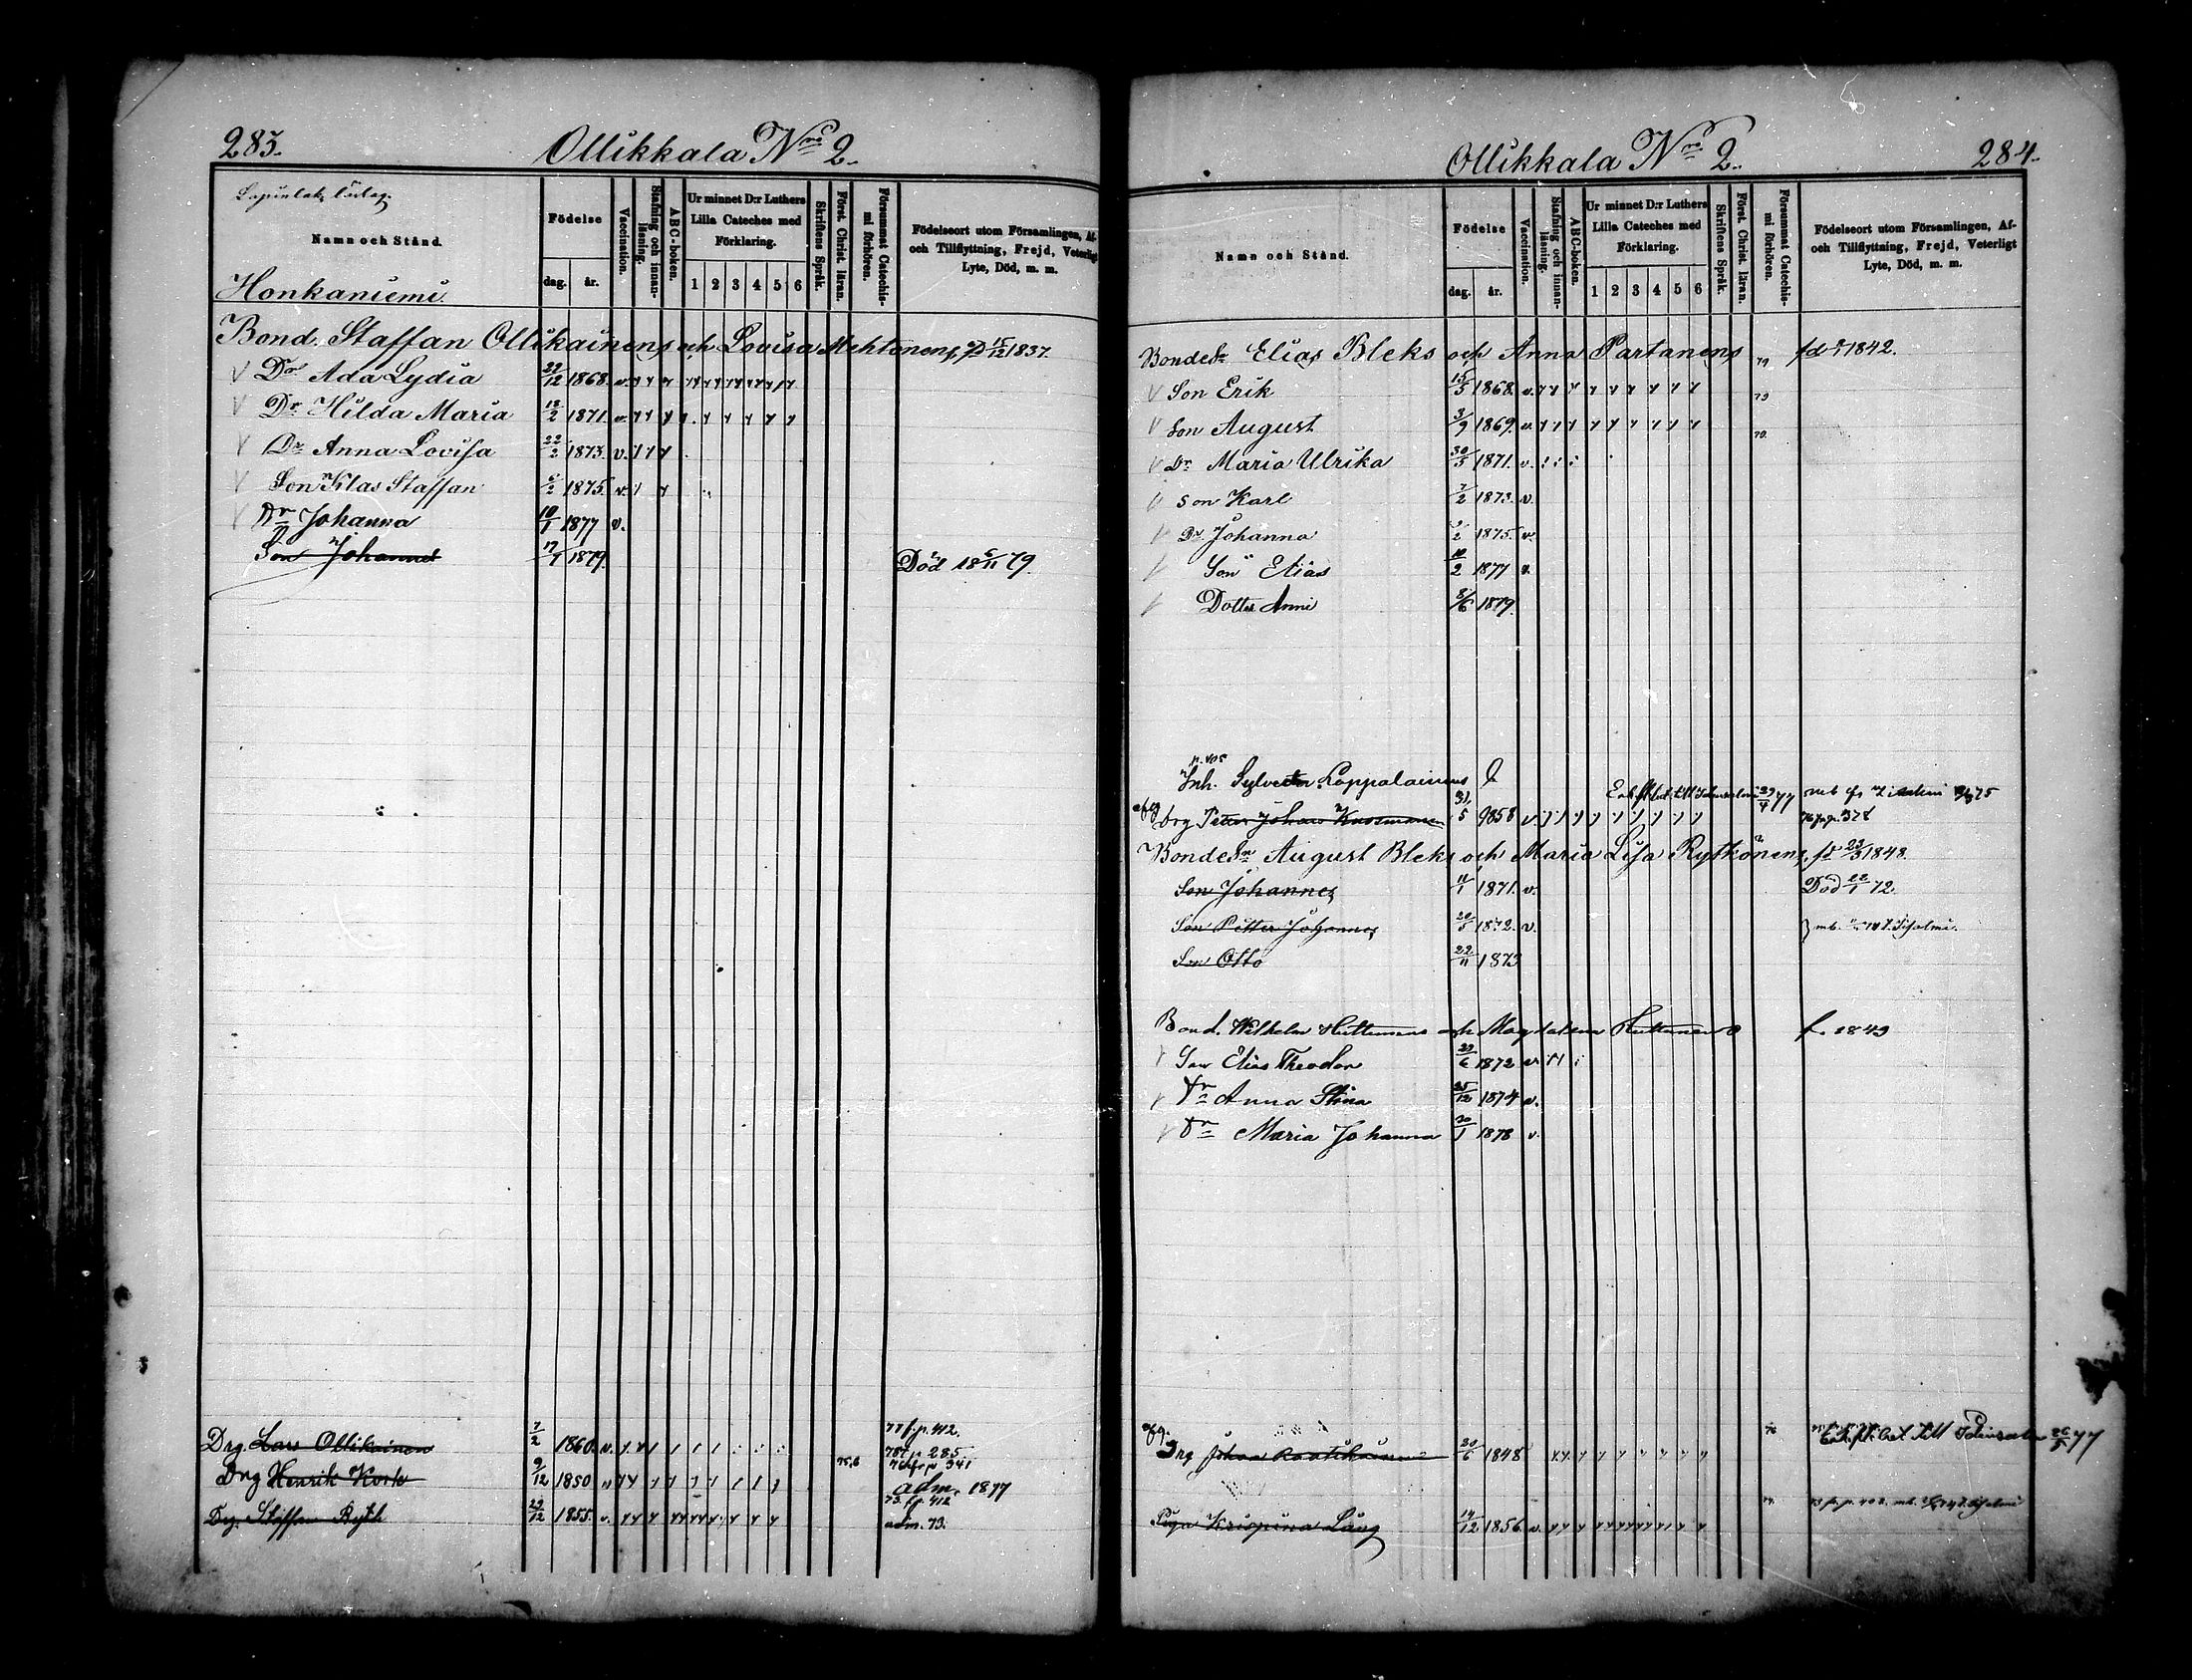 283.
Ollikkala Nro 2.
Namn och Stånd.
Födelse
dag. år.
Vaccination.
Stafning och innanläsning.
ABC-boken.
Ur minnet D:r Luthers Lilla Cateches med Förklaring.
1 2 3 4 5 6
Skriftens Språk.
Först. Christ. läran.
Försummat Catechismi förhören.
Födelseort utom Församlingen, Af- och Tillflyttning, Frejd, Veterligt Lyte, Död, m. m.
Honkaniemi.
Bond. Staffan Ollikainens och Lovisa Mehtonens, fd 15/12 1837.
Dr Ada Lydia 22/12 1868. v.
Dr Hilda Maria 18/2 1871. v.
Dr Anna Lovisa 22/2 1873. v.
Son Klas Staffan 6/2 1875. v.
Dr Johanna 10/1 1877 v.
Son Johannes 17/9 1879. Död 18 6/11 79.
77 f. p. 412.
Drg. Lars Ollikainen 7/2 1860. v. 78 f. p. 285
76 fr p 341
Drg Henrik Kork 9/12 1850 75,6 adm. 1877
73. f. p. 412
Drg. Staffan Ryth 29/12 1855. v. adm. 73.
284.
Ollikkala Nro 2.
Namn och Stånd.
Födelse
dag. år.
Vaccination.
Stafning och innanläsning.
ABC-boken.
Ur minnet D:r Luthers Lilla Cateches med Förklaring.
1 2 3 4 5 6
Skriftens Språk.
Först. Christ. läran.
Försummat Catechismi förhören.
Födelseort utom Församlingen, Af- och Tillflyttning, Frejd, Veterligt Lyte, Död, m. m.
Bondes Elias Bleks och Anna Partanens 79 fd 1842.
Son Erik 15/5 1868. v. 79
Son August 3/9 1869. v. 79.
Dr Maria Ulrika 30/5 1871. v.
Son Karl 7/2 1873. v.
Dr Johanna 1875. v.
Son Elias 10/2 1877 v.
Dotter Anni 8/6 1879.
p. 405
Inh. Loppalainens
Drg Petter Johan 5 1858 v. 76 fr p. 378
Bondes August Bleks och Maria Lisa Rytkönens, fd 23/3 1848.
Son Johannes 11/1 1871. v. Död 22/1 72.
Son Petter Johannes 20/5 1872. v.
Son Otto 22/11 1873
Bond. Wilhelm Huttunens och Magdalena Huttunens f. 1849
Son Elias Theodor 29/6 1872 v.
Dr Anna Stina 25/12 1874 v.
Dr Maria Johanna 20/1 1878 v.
76
Drg Johan 20/6 1848
74.
Piga Krispina Lång 14/12 1856. v.